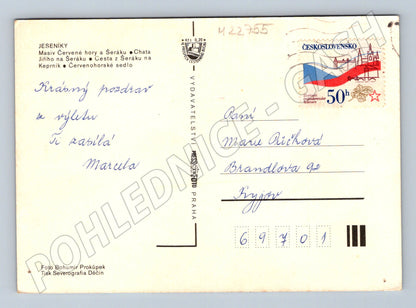 M22755
JESENÍKY
Masiv Červené hory a Šeráku • Chata
Jiřího na Šeráku • Cesta z Šeráku na
Keprník • Červenohorské sedlo
Krásný pozdrav
z výletu
Ti zasílá
Marcela
VYDAVATELSTVÍ PRAHA
ČESKOSLOVENSKO
50h
Paní
Marie Ričková
Brandlova 92
Kyjov
69701
Foto Bohumír Prokůpek
Tisk Severografia Děčín
POHLEDNICE